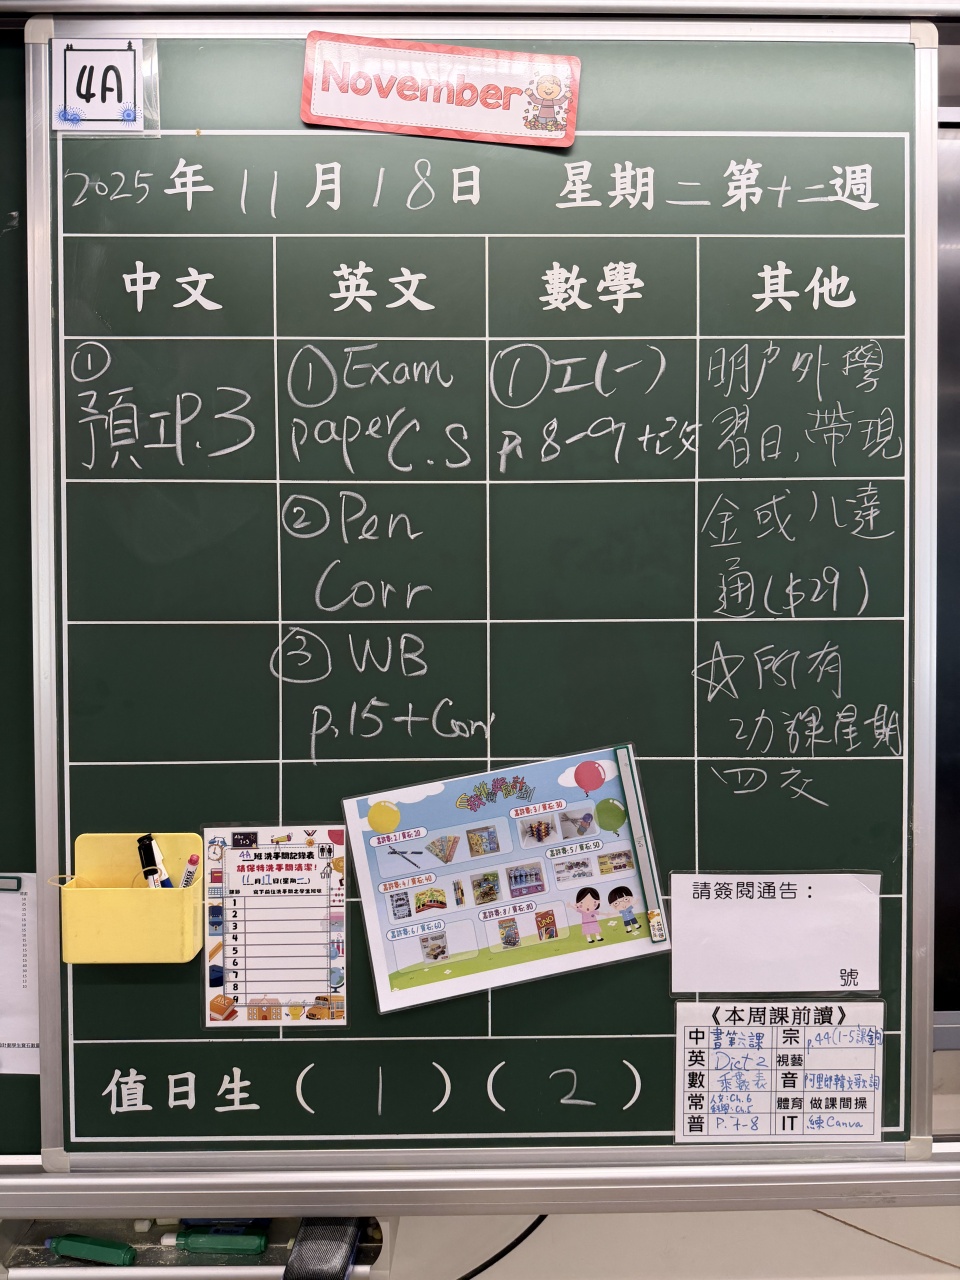 4A
November
2025年11月18日 星期二第十二週
中文 英文 數學 其他
①
預工P.3
① Exam
paper C.S
② Pen
Corr
③ WB
p.15+Corr
①工(一)
p.8-9+改
明戶外學
習日,帶現
金或八達
通($29)
☆所有
功課星期
四交
4A班洗手間記錄表
請保持洗手間清潔!
11月17日(星期一)
1
2
3
4
5
6
7
8
9
請簽閱通告:
號
《本周課前讀》
中 書第六課 宗 p.44(1-5課金句)
英 Dict 2 視藝
數 乘數表 音 阿里郎韓文歌詞
常 人文:Ch.6 體育 做課間操
科學:Ch.5
普 P.7-8 IT 練Canva
值日生(1)(2)